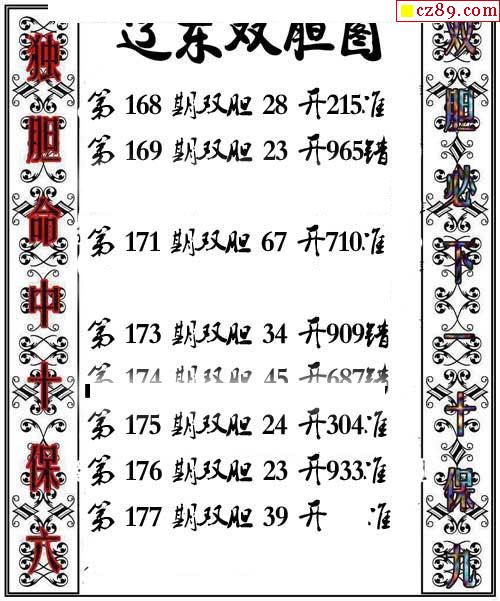 cz89.com
辽东双胆图
独胆命中十保六
双胆必下一十保九
第 168 期双胆 28 开215准
第 169 期双胆 23 开965错
第 171 期双胆 67 开710准
第 173 期双胆 34 开909错
第 174 期双胆 45 开687错
第 175 期双胆 24 开304准
第 176 期双胆 23 开933准
第 177 期双胆 39 开 准